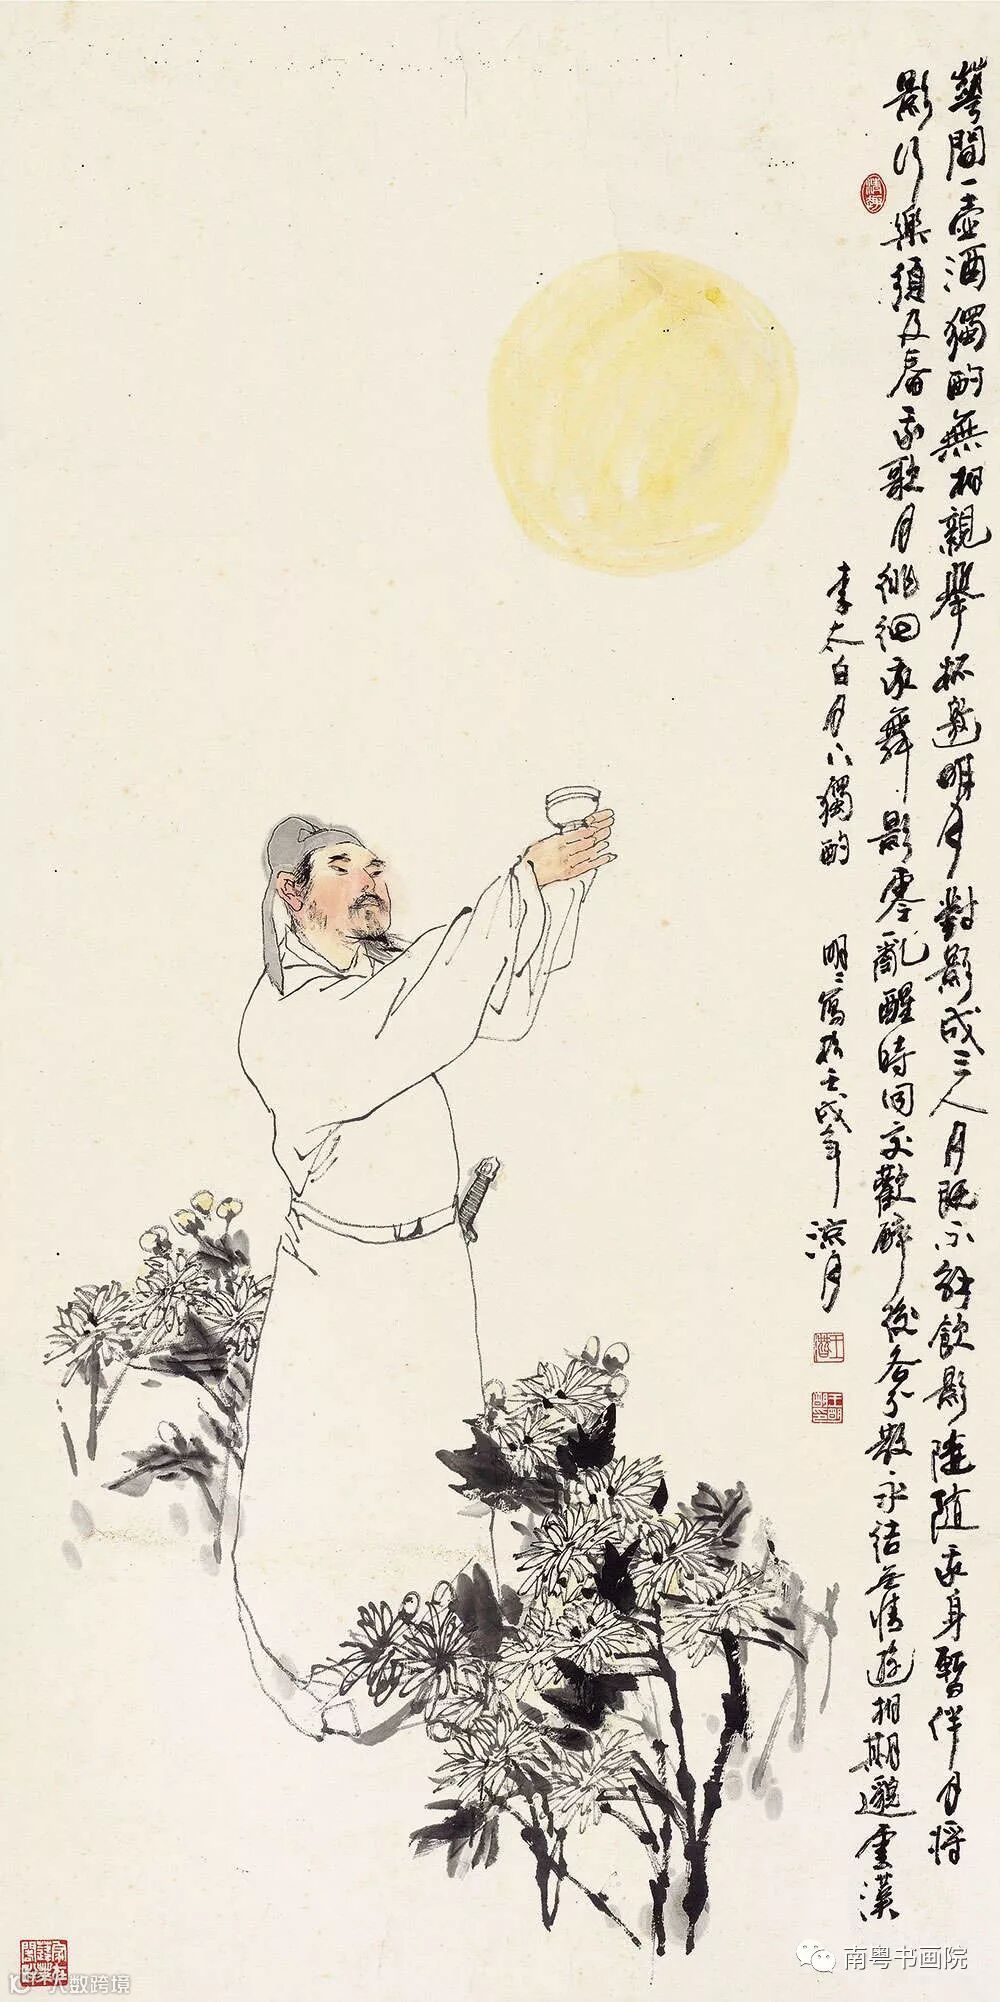 華間一壺酒獨酌無相親舉杯邀明月對影成三人月既不解飲影徒隨我身暫伴月將
影行樂須及春我歌月徘徊我舞影零亂醒時同交歡醉後各分散永結无情遊相期邈雲漢
李太白月下獨酌 明〻寫於壬戌年涼月
南粤书画院
大数跨境